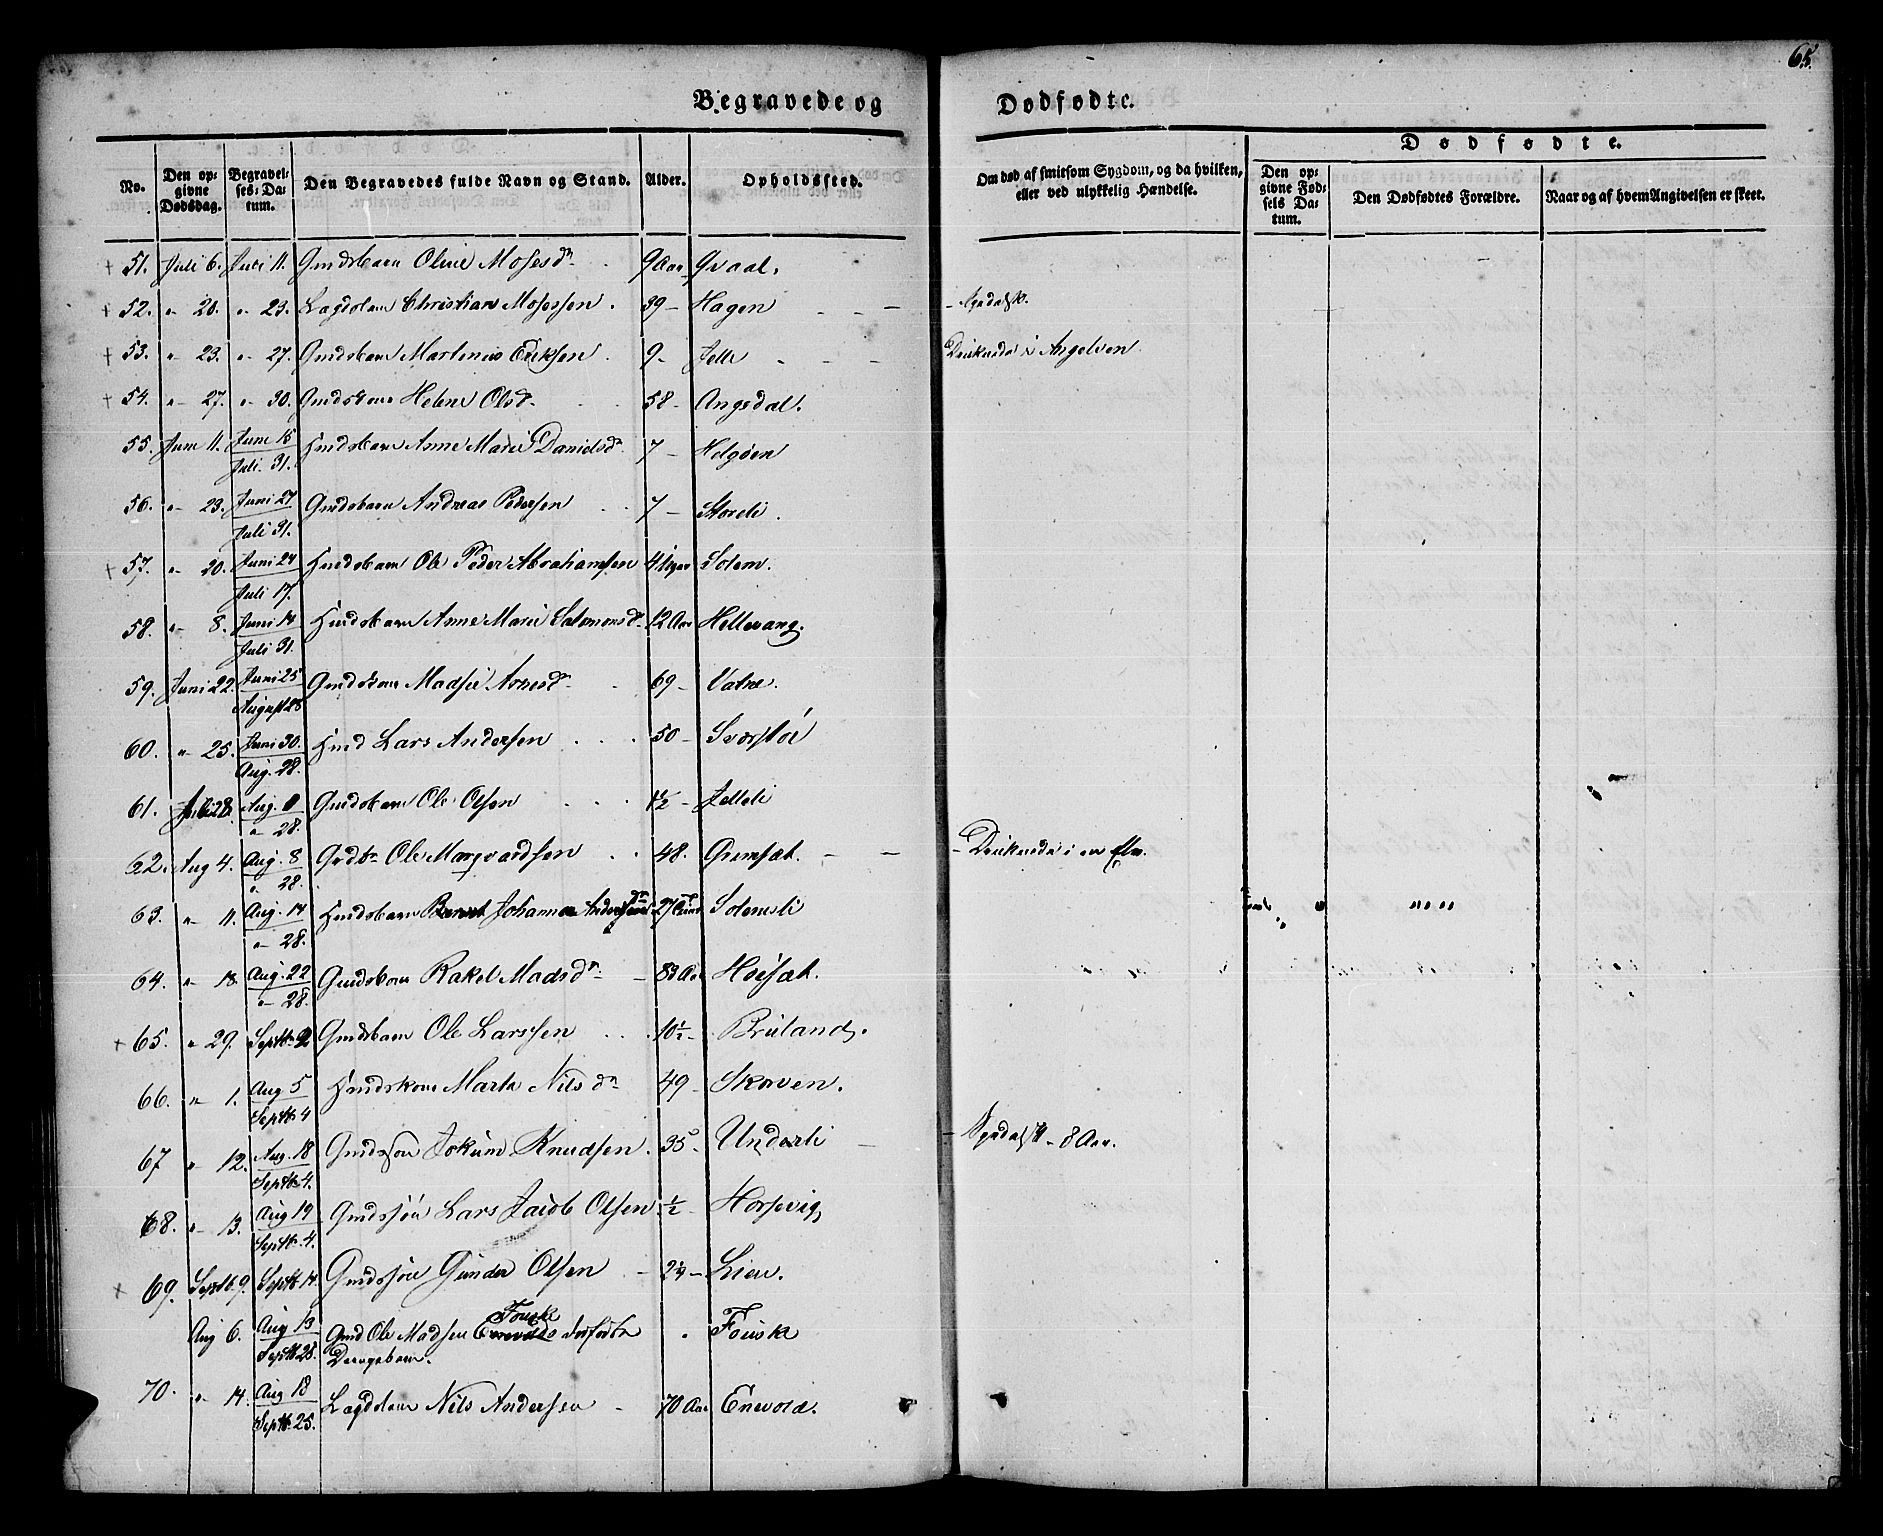 65.
Begravede og Dødfødte.
Dødfødte.
No.
Den opgivne Dødsdag.
Begravelses-Datum.
Den Begravedes fulde Navn og Stand.
Alder.
Opholdssted.
Om død af smitsom Sygdom, og da hvilken, eller ved ulykkelig Hændelse.
Den opgivne Fødsels Datum.
Den Dødfødtes Forældre.
Naar og af hvem Angivelsen er skeet.
+ 51. Juli 6. Juli 11. Gmdsbarn Oline Mosesdr 9 Aar Qvaal.
+ 52. " 20. " 23. Lægdslem Christian Mosessen. 39 - Hagen - Spedalsk.
+ 53. " 23. " 27. Gmdsbarn Martinus Eriksen. 9 - Jelli Druknede i Angelven
+ 54. " 27. " 30. Gmdskone Helene Olsdr 58 - Angsdal.
55. Juni 11. Juni 15 Juli 31. Hmdsbarn Anne Marie Danielsdr 7 - Helgøen
56. " 23. Juni 27 Juli 31. Gmdsbarn Andreas Pedersen 7 - Storeli.
+ 57. " 20. Juni 24 Juli 17. Hmdsbarn Ole Peder Abrahamsen 4 Uger Solem.
58. " 8. Juni 14 Juli 31. Hmdsbarn Anne Marie Salomonsdr 12 Aar Hellevang.
59. Juni 22. Juni 25 August 28 Gmdskone Madsie Arnesdr 69 - Vatne.
60. " 25. Juni 30. Aug. 28. Hmd Lars Andersen 50 -
61. Juli 28. Aug. " 28. Gmdsbarn Ole Olsen 1½ - Jelleli
62. Aug 4. Aug. 8 " 28. Ole Marqvardsen 48. Gremsæt. - Druknede i en Elv.
63. " 11. Aug. 14 " 28. Hmdsbarn Johanna Solemsli
64. " 18. Aug. 22 " 28. Gmdskone Rakel Madsdr 83 Aar Høisæt.
+ 65. " 29. Septbr 2 Gmdsbarn Ole Larssen 10½ - Bruland.
66. " 1. Aug 5 Septbr 4 Hmdskone Marte Nilsdr 49 - Skoven.
67 " 12. Aug. 18 Septbr. 4. Gmdssøn Jokum Knudsen. 35 - Underli - Spedalsk - 8 Aar.
68. " 13. Aug 19 Septbr. 4. Gmdssøn Lars Jacob Olsen ½ - Horsevig
+ 69. Septb. 9. Septbr 14. Gmdssøn Gunder Olsen - 24 - Lien.
Fouske
Aug 6. Aug 13 Septbr 25. Gmd Ole Madsen dødfødte " Fouske
Drengebarn.
70. " 14. Aug 18 Septbr. 25. Lægdslem Nils Andersen - 70 Aar Enevold.